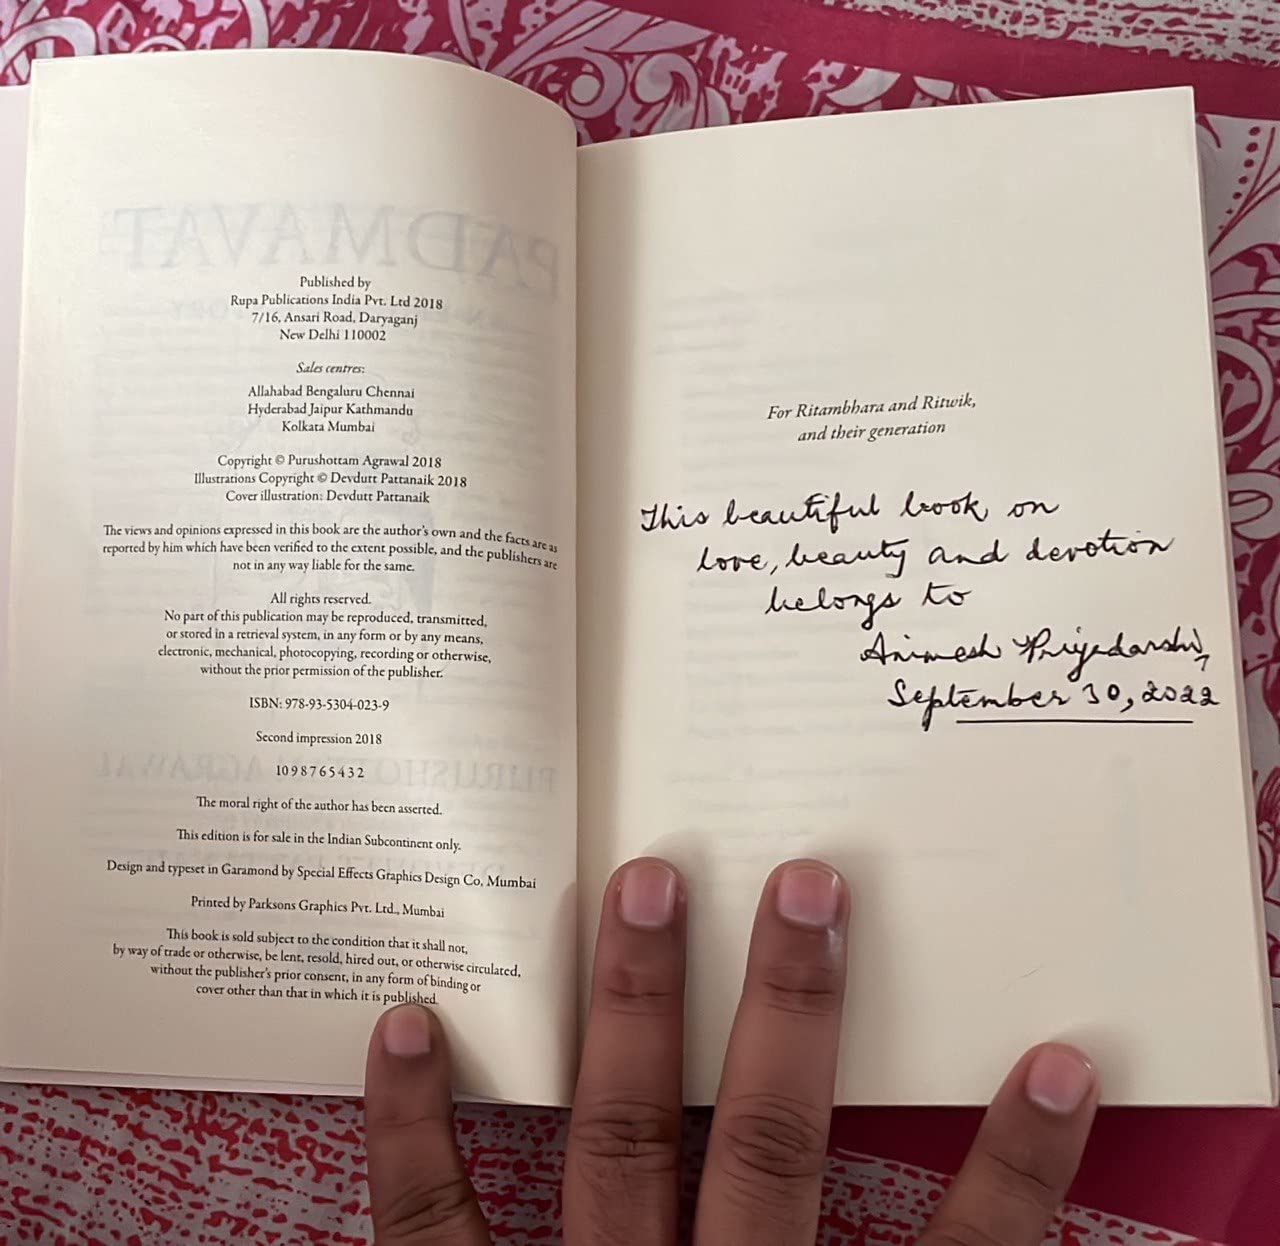 Published by
Rupa Publications India Pvt. Ltd 2018
7/16, Ansari Road, Daryaganj
New Delhi 110002
Sales centres:
Allahabad Bengaluru Chennai
Hyderabad Jaipur Kathmandu
Kolkata Mumbai
Copyright © Purushottam Agrawal 2018
Illustrations Copyright © Devdutt Pattanaik 2018
Cover illustration: Devdutt Pattanaik
The views and opinions expressed in this book are the author's own and the facts are as
reported by him which have been verified to the extent possible, and the publishers are
not in any way liable for the same.
All rights reserved.
No part of this publication may be reproduced, transmitted,
or stored in a retrieval system, in any form or by any means,
electronic, mechanical, photocopying, recording or otherwise,
without the prior permission of the publisher.
ISBN: 978-93-5304-023-9
Second impression 2018
10 9 8 7 6 5 4 3 2
The moral right of the author has been asserted.
This edition is for sale in the Indian Subcontinent only.
Design and typeset in Garamond by Special Effects Graphics Design Co, Mumbai
Printed by Parksons Graphics Pvt. Ltd., Mumbai
This book is sold subject to the condition that it shall not,
by way of trade or otherwise, be lent, resold, hired out, or otherwise circulated,
without the publisher's prior consent, in any form of binding or
cover other than that in which it is published.
For Ritambhara and Ritwik,
and their generation
This beautiful book on
love, beauty and devotion
belongs to
Animesh Priyadarshi,
September 30, 2022